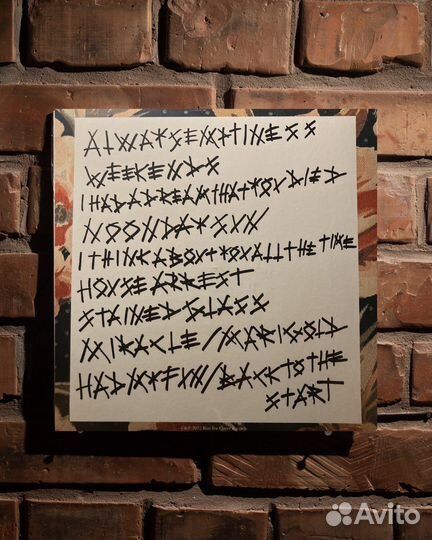 ALWAYS EMPTINESS
WEEKENDS
I HAD A DREAM THAT YOU DIED
NOONDAY SUN
I THINK ABOUT YOU ALL THE TIME
HOUSE ARREST
STAINED GLASS
MIRACLE / MARIGOLD
HAD MY FUN / BACK TO THE
START
Run For Cover
Avito